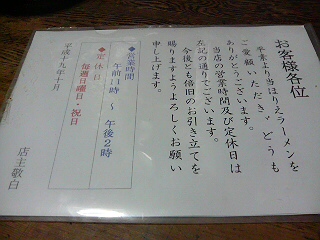 お客様各位
平素より当ばりえラーメンを
ご愛顧いただき、どうも
ありがとうございます。
当店の営業時間及び定休日は
左記の通りでございます。
今後とも倍旧のお引き立てを
賜りますようよろしくお願い
申し上げます。
◆営業時間
午前11時 〜 午後2時
◆定休日
毎週日曜日・祝日
平成十九年十月
店主敬白